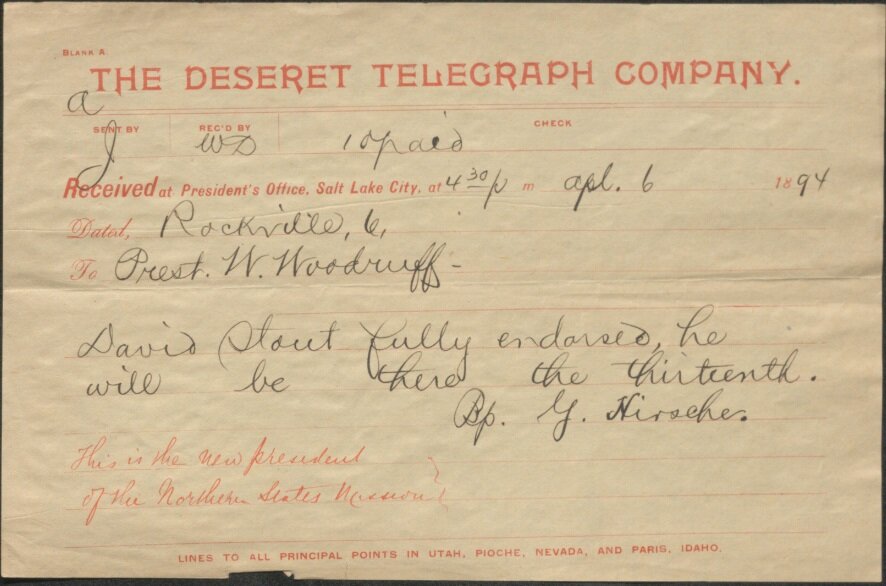 BLANK A.
THE DESERET TELEGRAPH COMPANY.
a
SENT BY REC'D BY CHECK
J WD 10 paid
Received at President's Office, Salt Lake City, at 4 30/p m apl. 6 1894
Dated, Rockville, 6,
To Prest. W. Woodruff -
David Stout fully endorsed, he
will be there the thirteenth.
Bp. G. Hirsche.
This is the new president
of the Northern States Mission
LINES TO ALL PRINCIPAL POINTS IN UTAH, PIOCHE, NEVADA, AND PARIS, IDAHO.